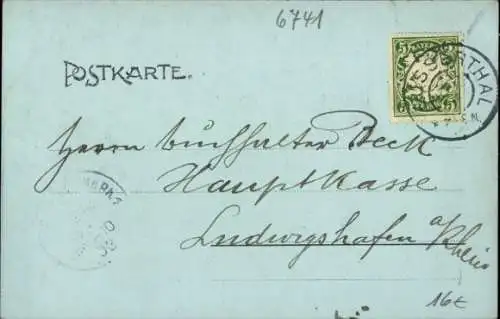 6741
POSTKARTE.
5 5
Herrn Buchhalter Beck
Hauptkasse
Ludwigshafen a/Rhein
16€